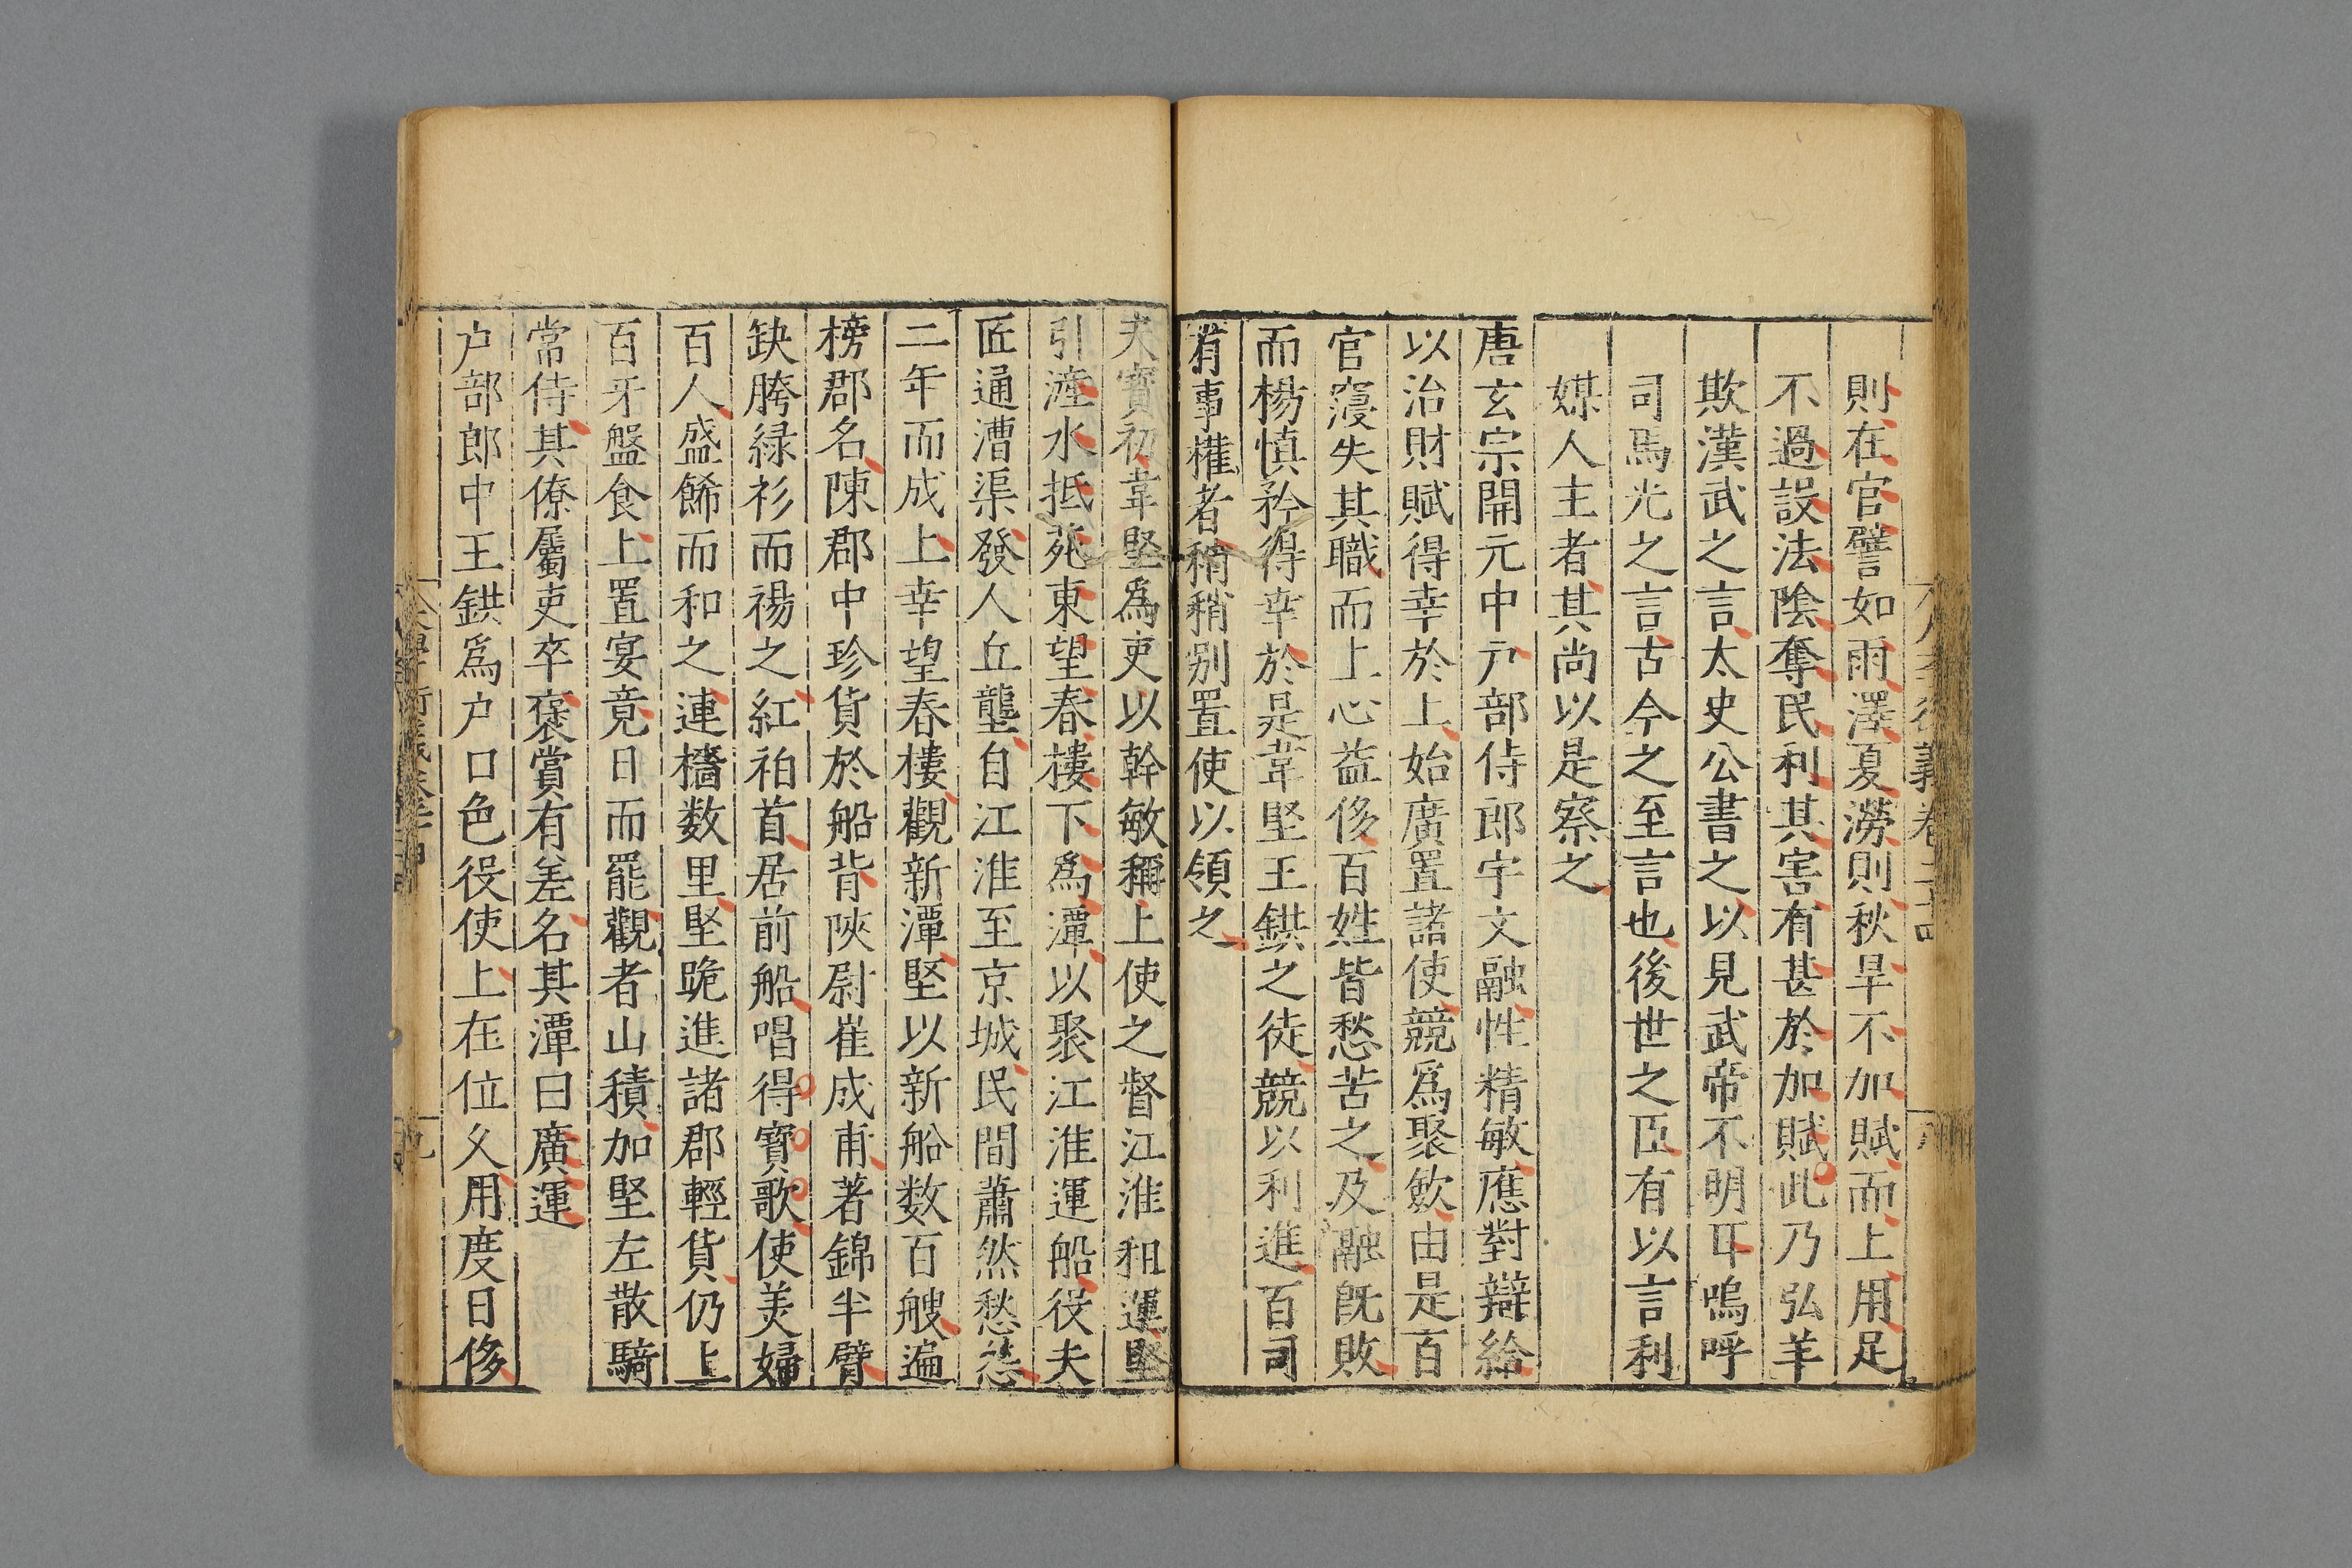 則在官譬如雨澤夏澇則秋旱不加賦而上用足
不過設法陰奪民利其害有甚於加賦此乃弘羊
欺漢武之言太史公書之以見武帝不明耳嗚呼
司馬光之言古今之至言也後世之臣有以言利
媒人主者其尚以是察之
唐玄宗開元中戶部侍郎宇文融性精敏應對辯給
以治財賦得幸於上始廣置諸使競爲聚歛由是百
官寖失其職而上心益侈百姓皆愁苦之及融旣敗
而楊慎矜得幸於是韋堅王鉷之徒競以利進百司
有事權者稍稍别置使以領之
天寳初韋堅爲吏以幹敏稱上使之督江淮租運堅
引滻水抵苑東望春樓下爲潭以聚江淮運船役夫
匠通漕渠發人丘壟自江淮至京城民間蕭然愁怨
二年而成上幸望春樓觀新潭堅以新船数百艘遍
榜郡名陳郡中珍貨於船背陝尉崔成甫著錦半臂
缺胯緑衫而裼之紅袙首居前船唱得寳歌使美婦
百人盛餙而和之連檣数里堅跪進諸郡輕貨仍上
百牙盤食上置宴竟日而罷觀者山積加堅左散騎
常侍其僚屬吏卒褒賞有差名其潭曰廣運
户部郎中王鉷爲户口色役使上在位久用度日侈